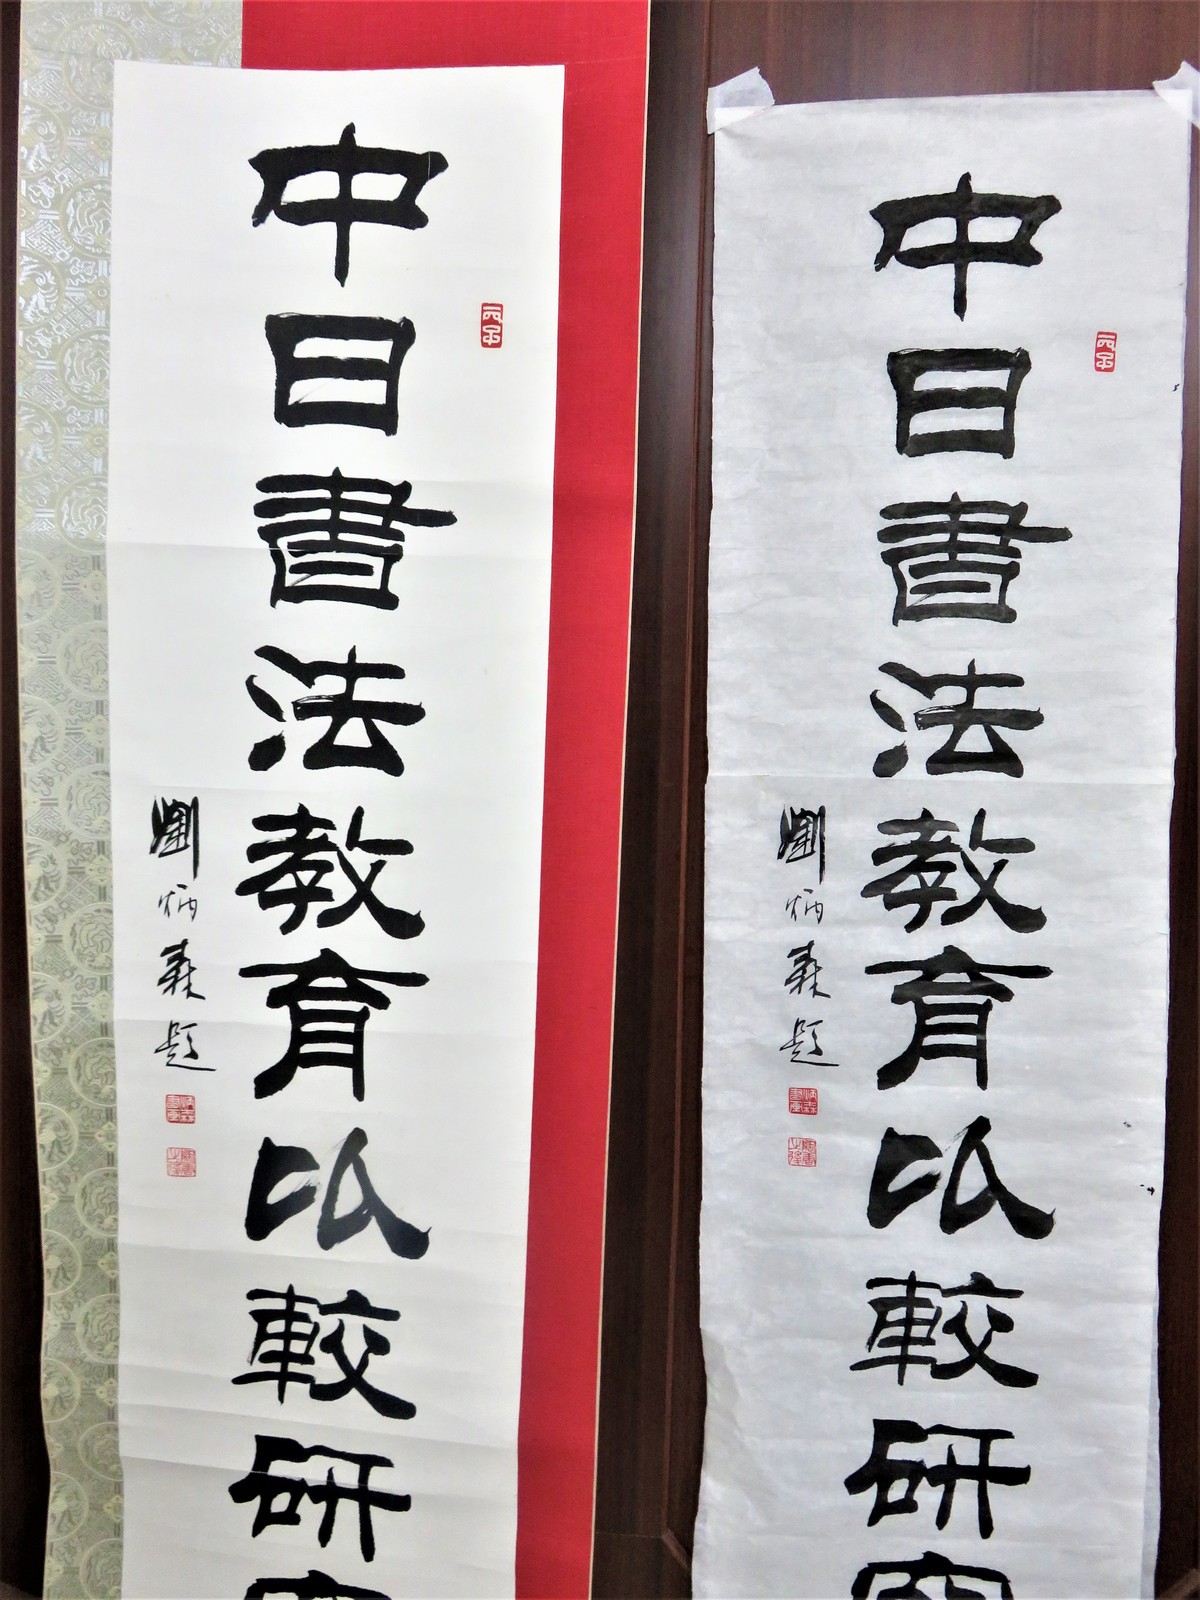 中日書法教育以較研
劉炳森題
中日書法教育以較研
劉炳森題